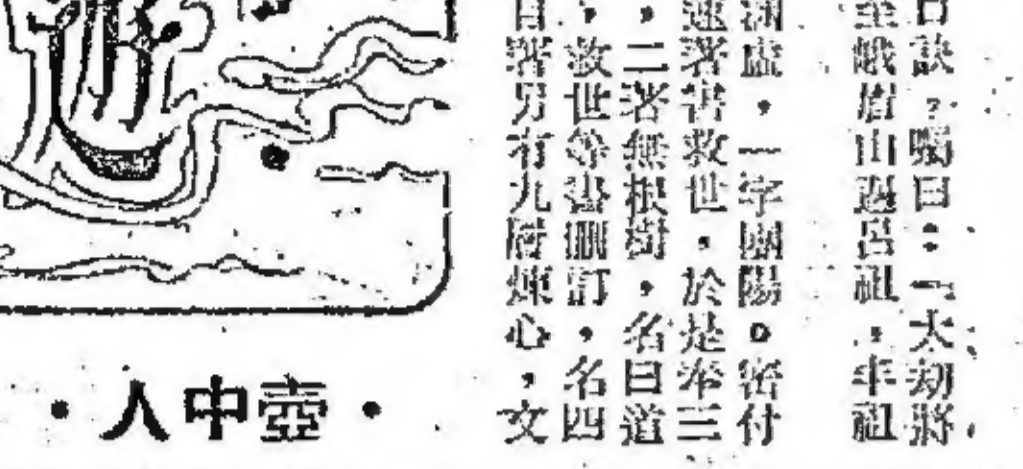 口訣,囑曰:「大劫將
至峨眉山遇呂祖,
涵虛,一字團陽。密付
速著書救世,於是奉三
,二著無根樹,名曰道
,救世等書刪訂,名四
自署另有九層煉心,文
·壺中人·